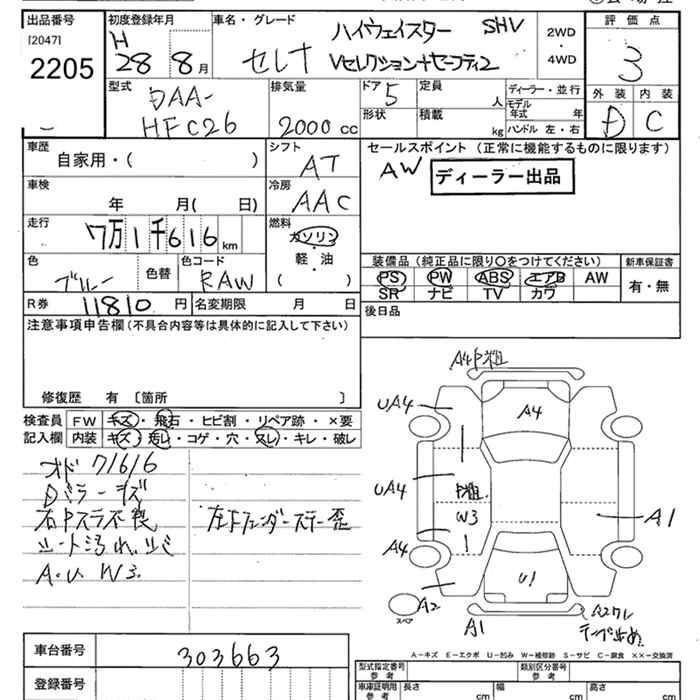 出品番号
[2047]
2205
初度登録年月
H
28 8月
車名・グレード
セレナ
ハイウェイスター SHV
Vセレクション+セーフティ2
2WD
・
4WD
評価点
3
外装 内装
D C
型式
DAA-
HFC26
排気量
2000 cc
ドア 5
形状
定員
人
積載
kg
ディーラー・並行
モデル
年式 年
ハンドル 左・右
車歴
自家用・( )
シフト
AT
車検
年 月( 日)
冷房
AAC
走行
7万1千616 km
燃料
ガソリン
軽・油
( )
色
ブルー
色替
色コード
RAW
R券 11810 円
名変期限 月 日
セールスポイント (正常に機能するものに限ります)
AW ディーラー出品
装備品 (純正品に限り〇をつけてください)
PS PW ABS エアB AW
SR ナビ TV カワ
新車保証書
有・無
後日品
注意事項申告欄(不具合内容等は具体的に記入して下さい)
修復歴 有 〔箇所 〕
検査員
記入欄
FW キズ・飛石・ヒビ割・リペア跡・×要
内装 キズ・汚レ・コゲ・穴・スレ・キレ・破レ
オド 71616
Dミラーキズ
シート汚れ
A.U W3.
A4
UA4
A4
UA4
W3
A4
A1
U1
A2
スペア
A1
A2ワレ
A−キズ E−エクボ U−凹み W−補修跡 S−サビ C−腐食 ××−交換済
車台番号
303663
登録番号
型式指定番号
参考
類別区分番号
参考
車庫証明用
参考
長さ cm
幅 cm
高さ cm